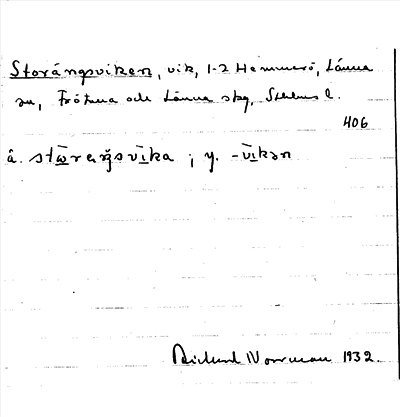 Storängsviken, vik, 1-2 Hemmerö, Länna
sn, Frötuna och Länna skg, Sthlms l.
406
å. stωreŋsvika ; y. -vikən
Rickard Norrman 1932.